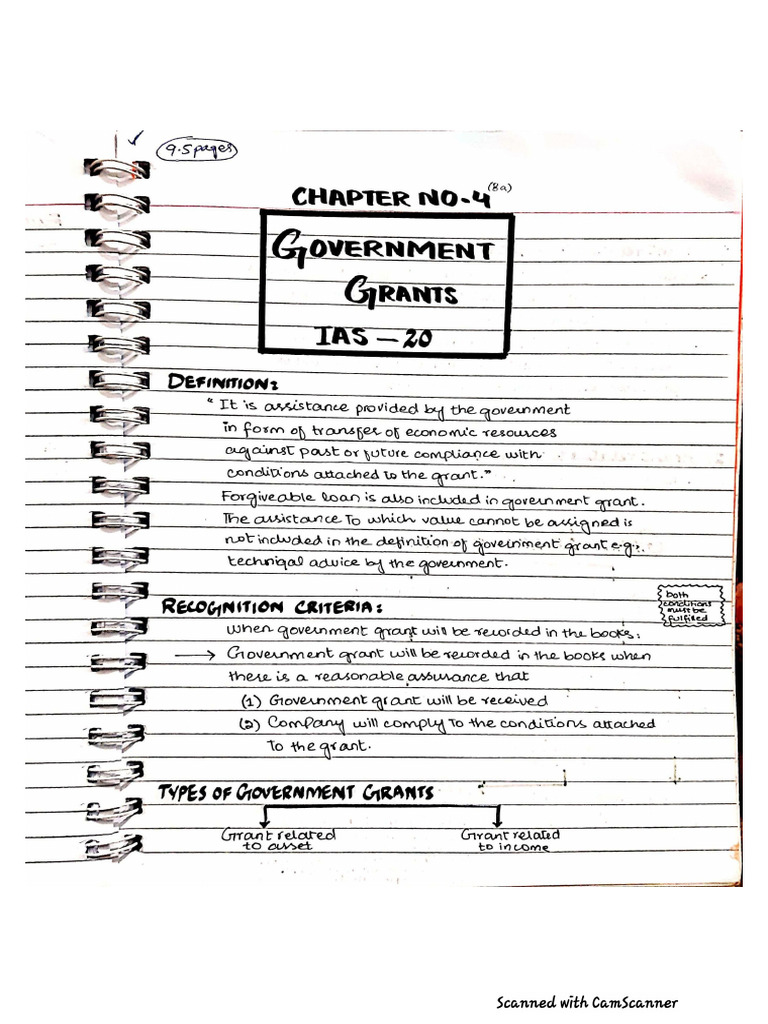 9.5 pages
CHAPTER NO-4 (8a)
GOVERNMENT
GRANTS
IAS - 20
DEFINITION:
" It is assistance provided by the government
in form of transfer of economic resources
against past or future compliance with
conditions attached to the grant."
Forgiveable loan is also included in government grant.
The assistance to which value cannot be assigned is
not included in the definition of government grant e.g:.
techniqal advice by the government.
both
conditions
must be
fulfilled
RECOGINITION CRITERIA:
When government grant will be recorded in the books:
→ Government grant will be recorded in the books when
there is a reasonable assurance that
(1) Government grant will be received
(2) Company will comply to the conditions attached
to the grant.
TYPES OF GOVERNMENT GRANTS
Grant related Grant related
to asset to income
Scanned with CamScanner